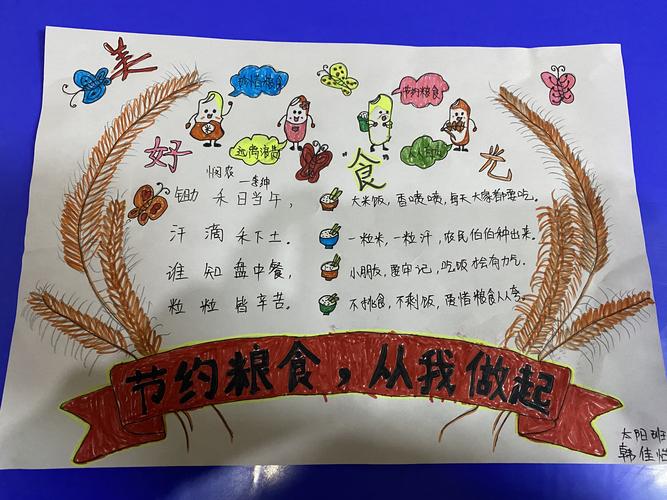 美好"食"光
珍惜粮食
节约粮食
远离浪费
悯农
一李绅
锄 禾 日当午，
汗 滴 禾下土。
谁 知 盘中餐，
粒 粒 皆辛苦。
大米饭，香喷喷，每天大家都要吃。
一粒米，一粒汗，农民伯伯种出来。
小朋友，要牢记，吃饭才会有力气。
不挑食，不剩饭，爱惜粮食人人夸。
节约粮食，从我做起
太阳班
韩佳怡